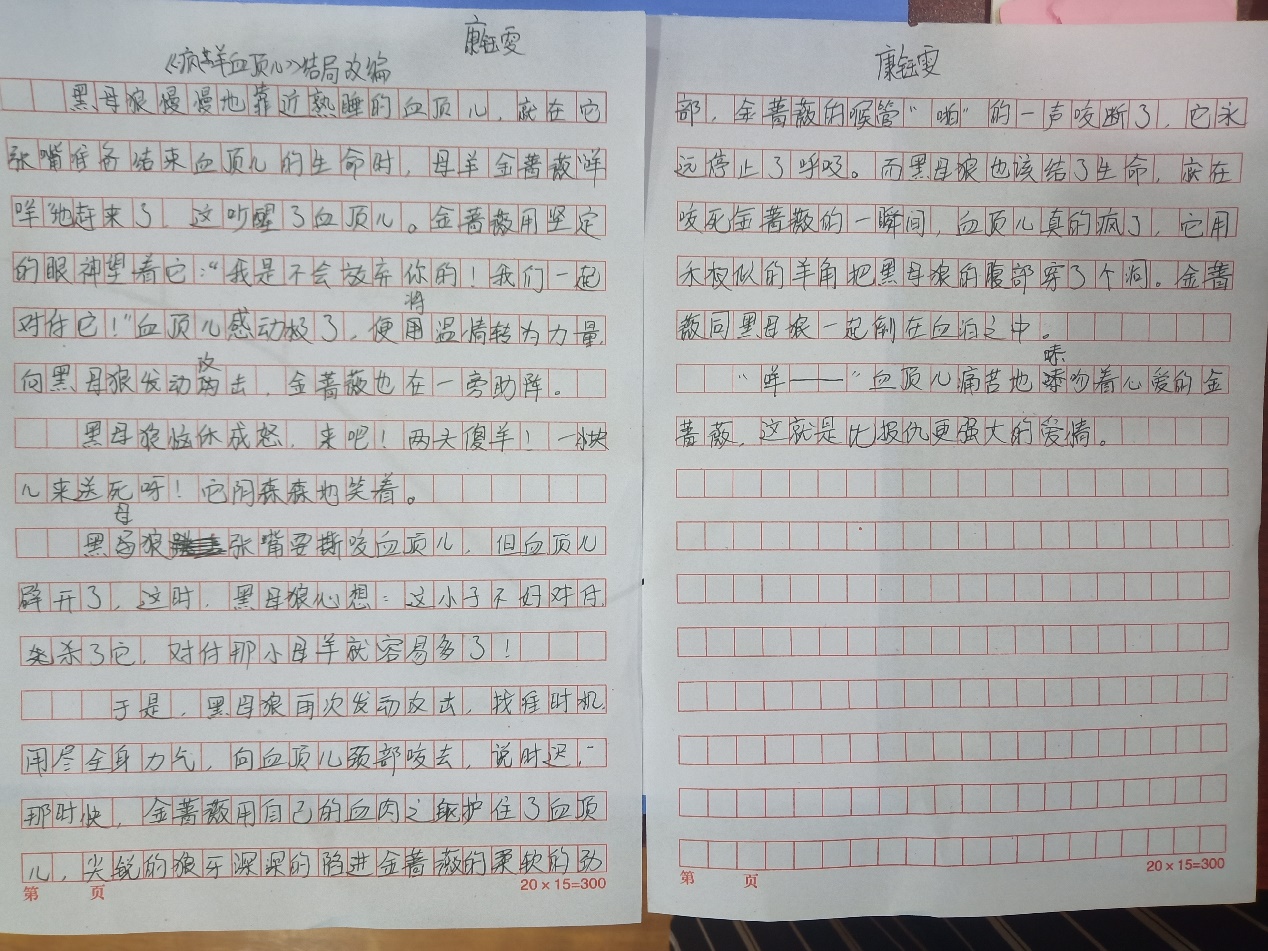 康钰雯
《疯羊血顶儿》结局改编
黑母狼慢慢地靠近熟睡的血顶儿，就在它
张嘴准备结束血顶儿的生命时，母羊金蔷薇咩
咩地赶来了，这吵醒了血顶儿。金蔷薇用坚定
的眼神望着它：“我是不会放弃你的！我们一起
对付它！”血顶儿感动极了，便将温情转为力量，
向黑母狼发动攻击，金蔷薇也在一旁助阵。
黑母狼恼休成怒，来吧！两夭傻羊！一块
儿来送死呀！它阴森森地笑着。
黑母狼张嘴要撕咬血顶儿，但血顶儿
辟开了，这时，黑母狼心想：这小子不好对付，
先杀了它，对付那小母羊就容易多了！
于是，黑母狼再次发动攻击，找准时机，
用尽全身力气，向血顶儿颈部咬去，说时迟，
那时快，金蔷薇用自己的血肉之躯护住了血顶
儿，尖锐的狼牙深深的陷进金蔷薇的柔软的劲
第 页
20×15=300
康钰雯
部，金蔷薇的喉管“啪”的一声咬断了，它永
远停止了呼吸。而黑母狼也该结了生命，就在
咬死金蔷薇的一瞬间，血顶儿真的疯了，它用
木杈似的羊角把黑母狼的腹部穿了个洞。金蔷
薇同黑母狼一起倒在血泊之中。
“咩——”血顶儿痛苦地嗦吻着心爱的金
蔷薇，这就是比报仇更强大的爱情。
第 页
20×15=300